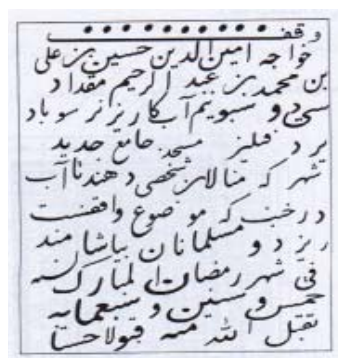 وقف ..........
خواجه امین الدین حسین بن علی
بن محمد بن عبد الرحیم مقداد
سی و سیویم آب کاریز نرسوباد
یزد مسجد جامع جدید
شهر که شخصی دهند تا آب
درخت که موضوع واقفست
ریزد و مسلمانان بیاشامند
فی شهر رمضان المبارک سنه
خمس و ستین و سبعمایه
تقبل الله منه قبولا حسنا